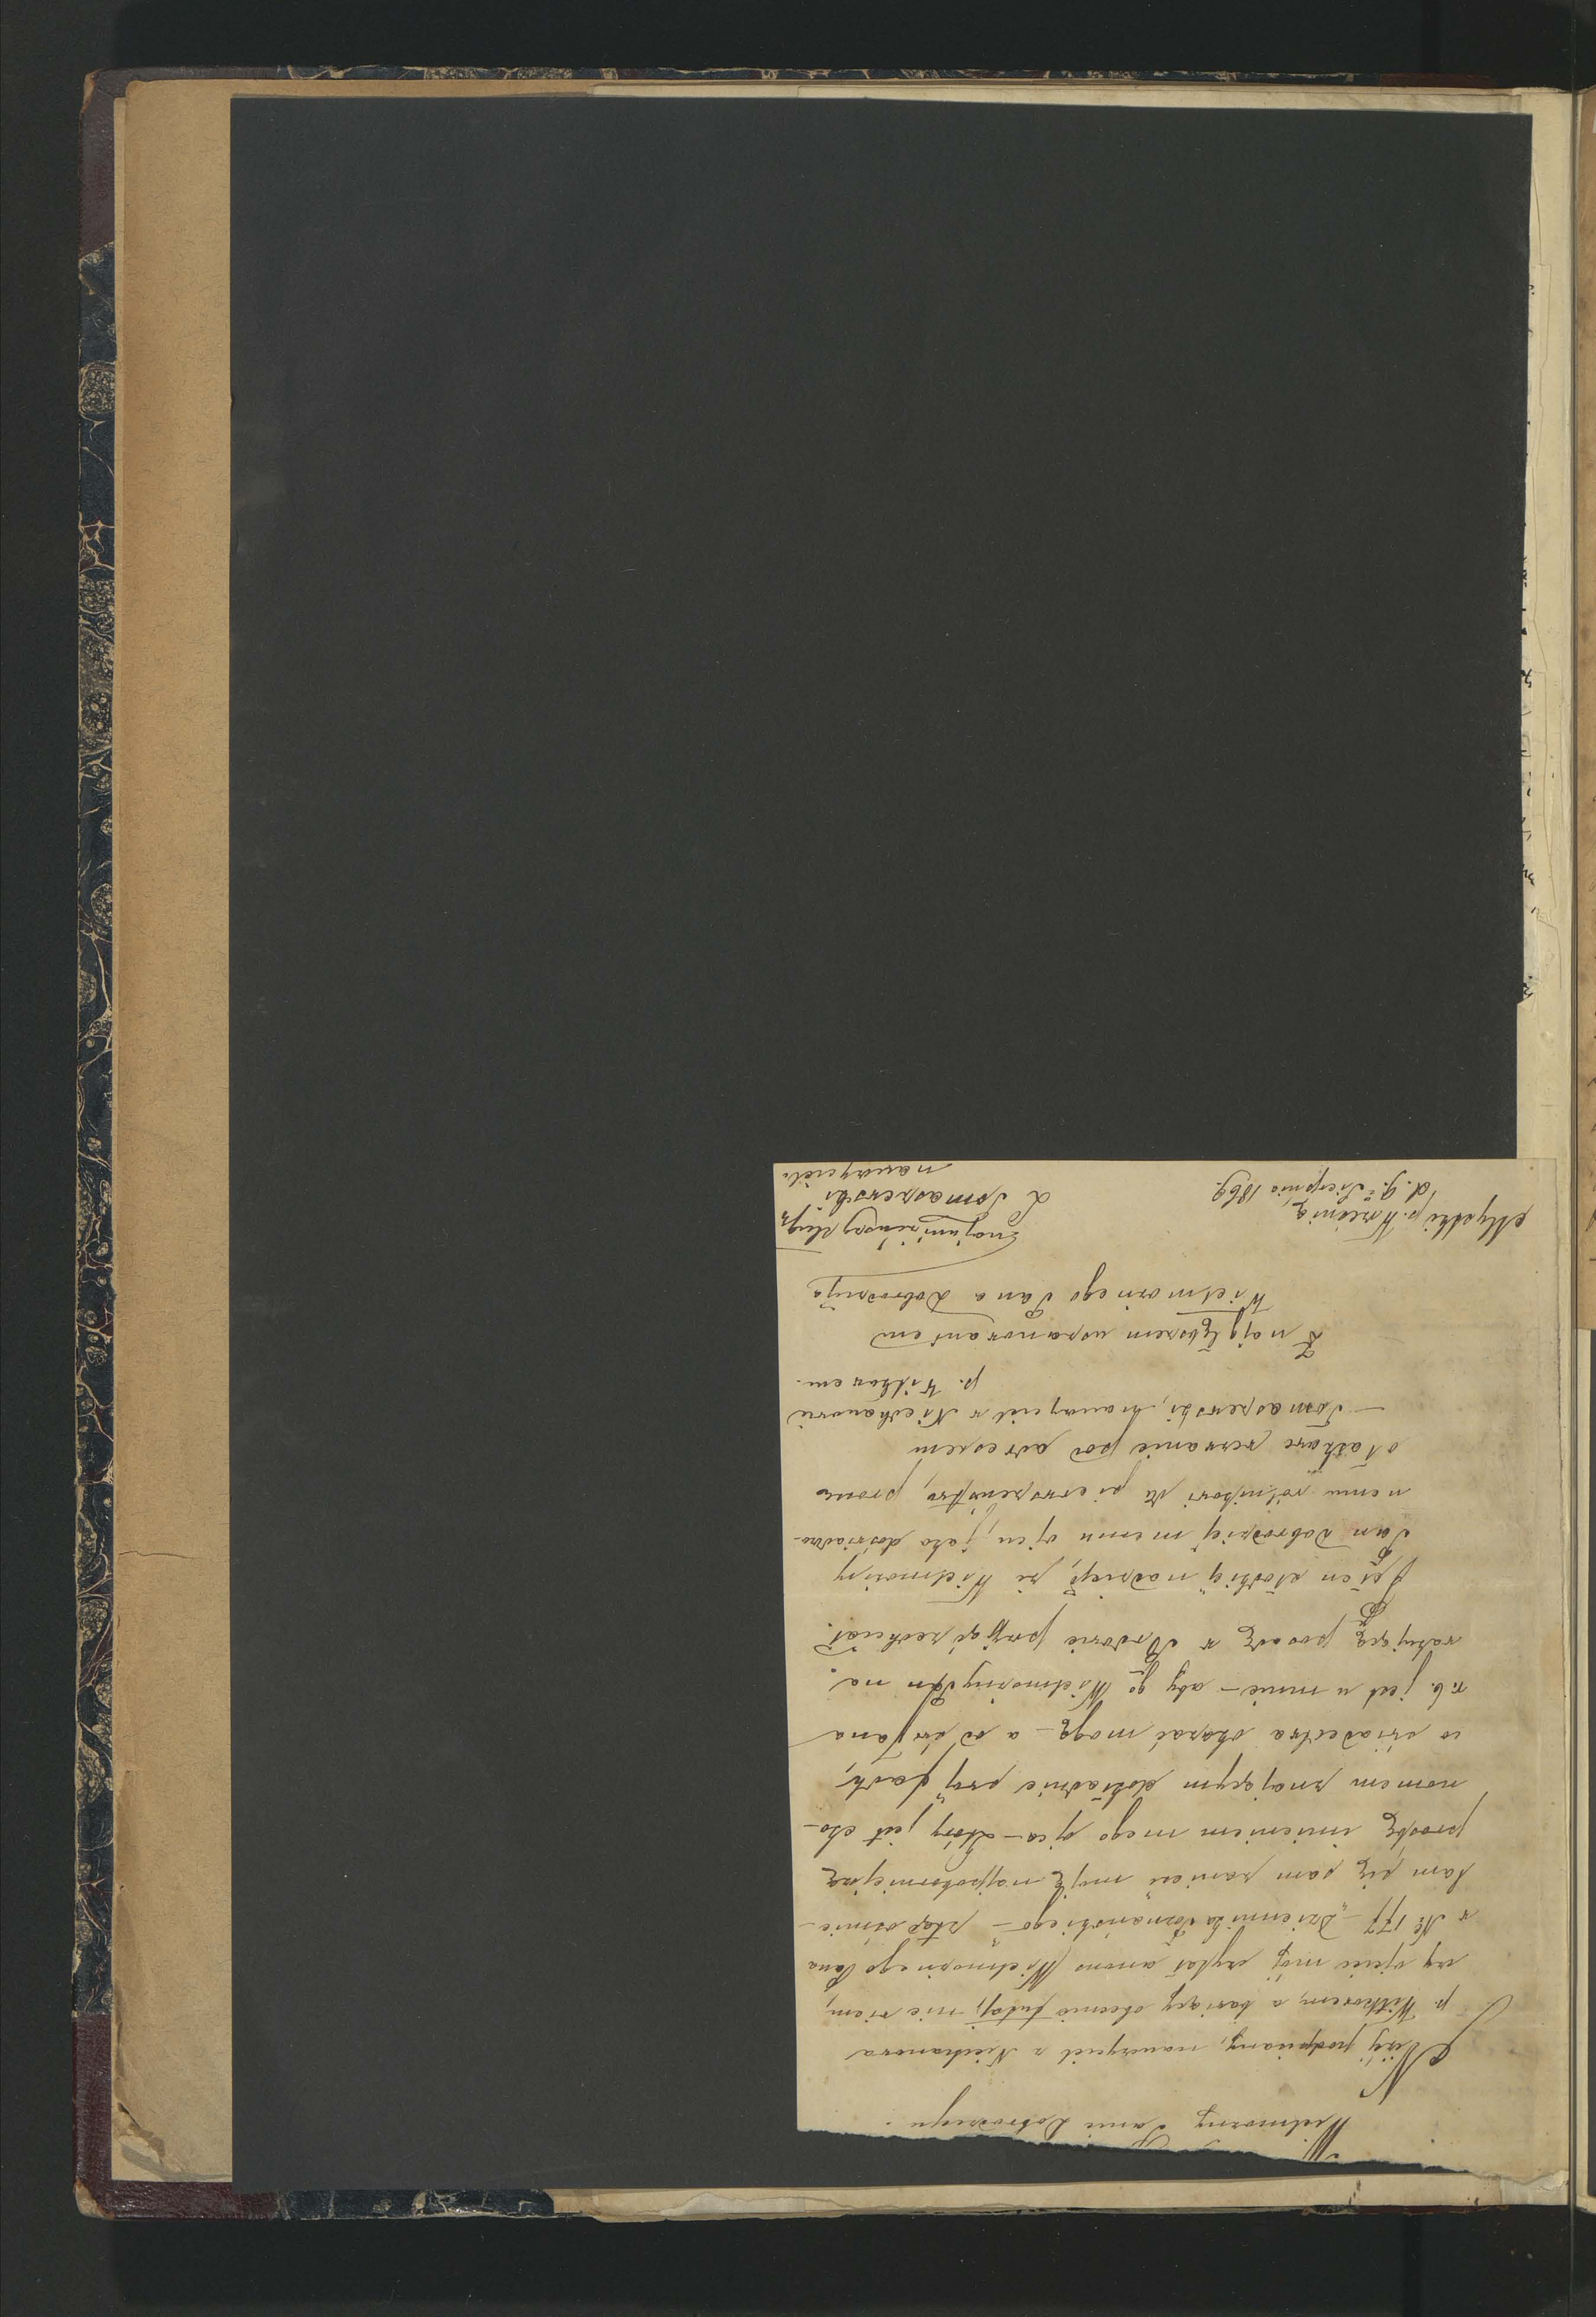 Wielmożny Panie Dobrodzieju.
Niżej podpisany, nauczyciel z Niechanowa
p. Witkowem, a bawiący obecnie tutaj, nie wiem,
czy ojciec mój czytał anons Wielmożnego Pana
w № 177 "Dziennika Poznańskiego"
łam się sam zanieść moję najpokorniejszą
prośbę imieniem mego ojca – który jest eko-
nomem znającym dokładnie swój fach,
co świadectwa okazać mogą – a od św Jana
r. b. jest u mnie – aby go Wielmożny Pan na
wakującą posadę w przyjąć zechciał.
Jestem słodkiej nadzieje, że Wielmożny
Pan Dobrodziej memu ojcu, jako doświadczo-
nemu rólnikowi da pierwszeństwo, prosząc
o łaskawe wezwanie pod adresem
– Tomaszewski, nauczyciel w Niechanowie
p. Witkowem.
Z najgłębszem uszanowaniem
Wielmożnego Pana Dobrodzieja
najuniżeńszy sługa
L Tomaszewski
nauczyciel.
p. Wrześnią
d. 9. Sierpnia 1869.